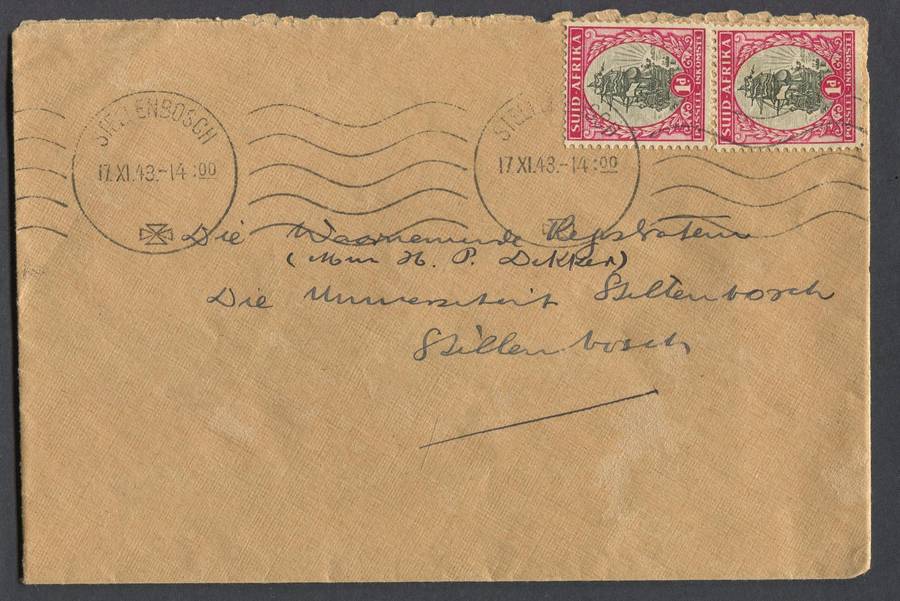 SUID-AFRIKA
1d
POSSEEL-INKOMSTE
SUID-AFRIKA
1d
POSSEEL-INKOMSTE
STELLENBOSCH
17.XI.43.-14:00
STELL
17.XI.43.-14:00
Die Waarnemende Registrateur
(Mnr H. P. Dekker)
Die Universiteit Stellenbosch
Stellenbosch